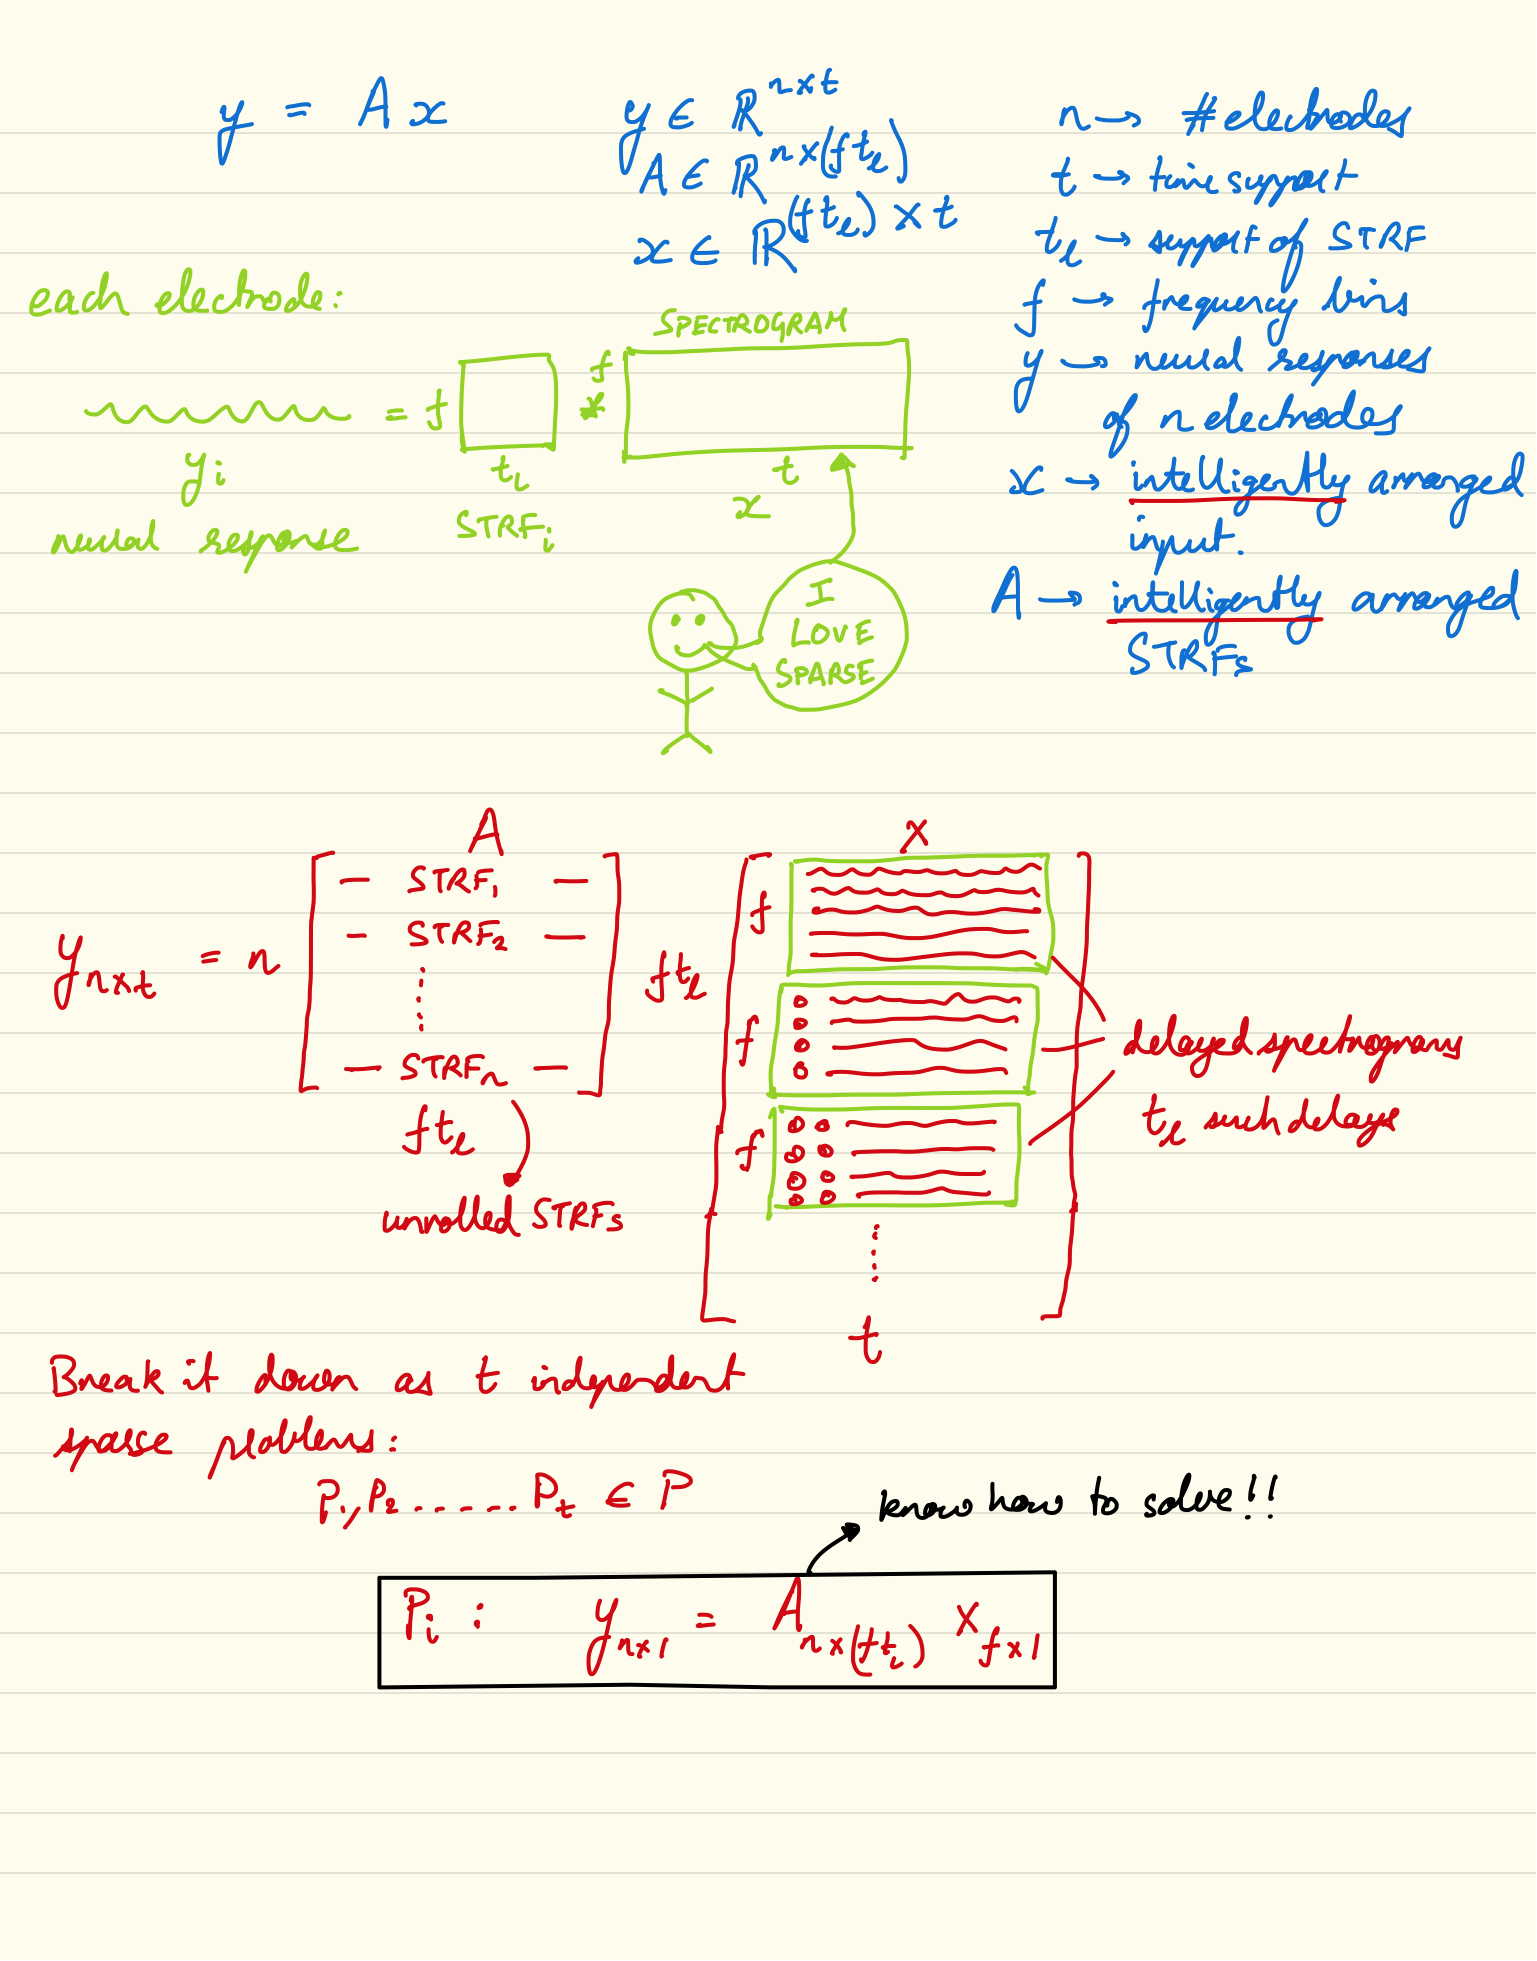 y = A x
y ∈ ℝ^{n×t}
A ∈ ℝ^{n×(f t_l)}
x ∈ ℝ^{(f t_l) × t}
n → #electrodes
t → time support
t_l → support of STRF
f → frequency bins
y → neural responses
of n electrodes
x → intelligently arranged
input.
A → intelligently arranged
STRFs
each electrode:
SPECTROGRAM
= f * f
y_i
t_l
t
x
neural response
STRF_i
I
LOVE
SPARSE
A
X
STRF_1
STRF_2
y_{n×t} = n
STRF_n
f t_l
unrolled STRFs
f t_l
f
f
f
delayed spectrograms
t_l such delays
t
Break it down as t independent
sparse problems:
P_1, P_2 ....... P_t ∈ P
know how to solve!!
P_i : y_{n×1} = A_{n×(f t_l)} X_{f×1}